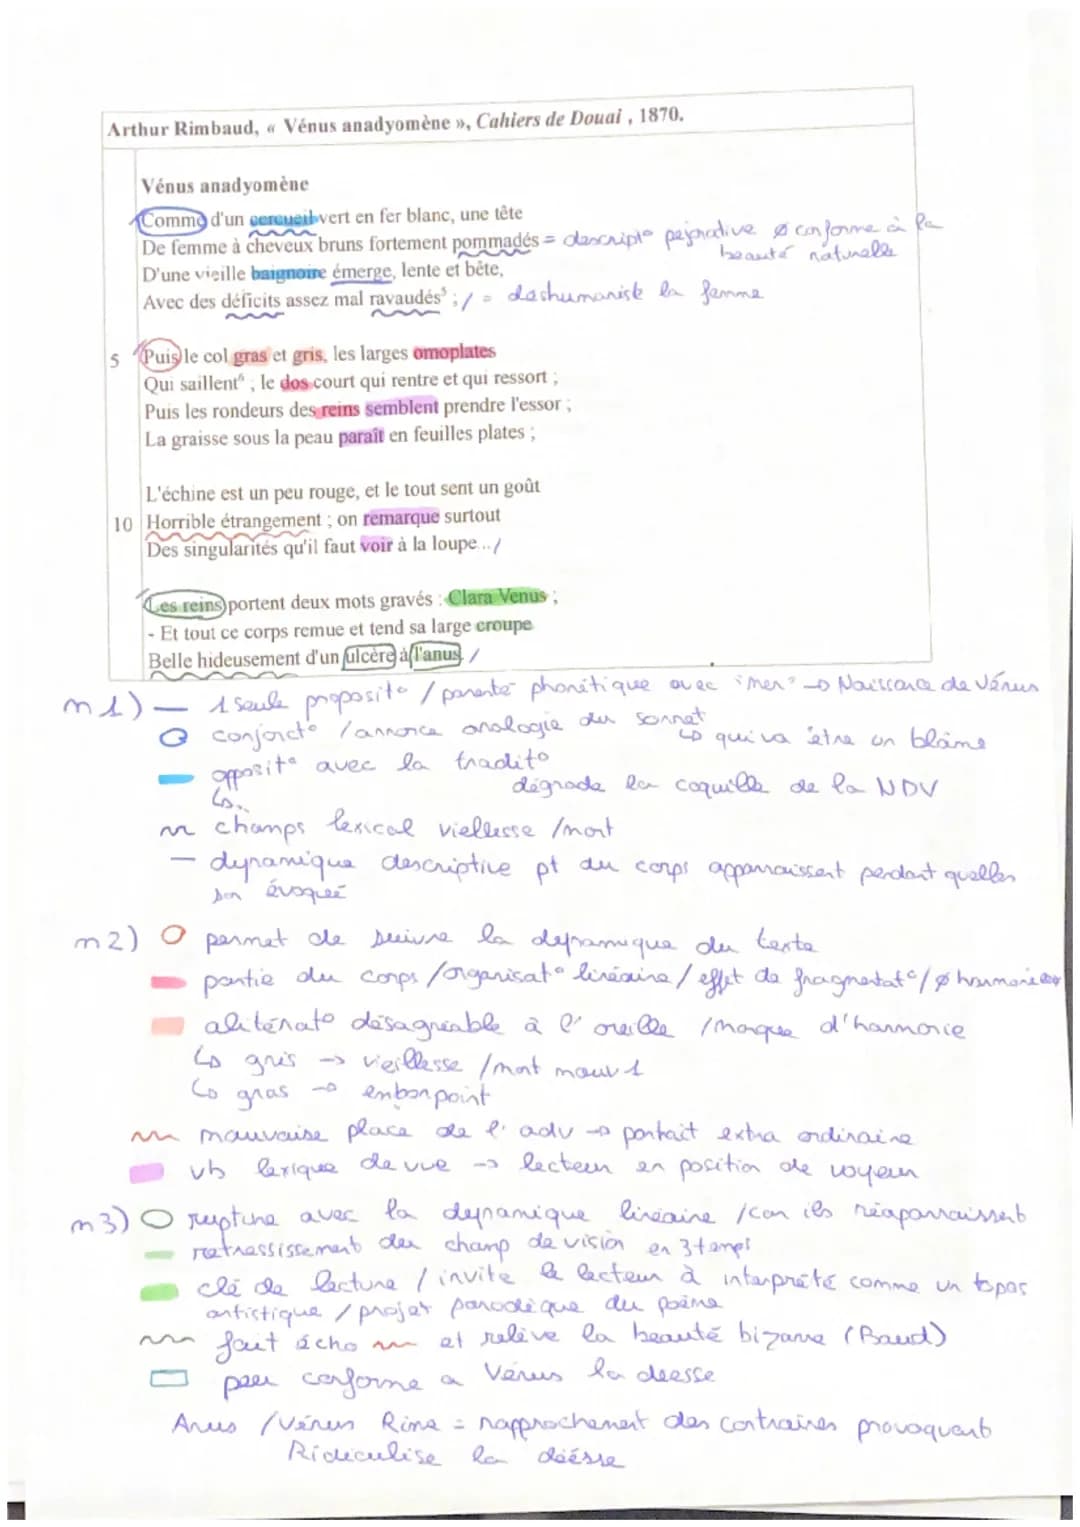 Arthur Rimbaud, « Vénus anadyomène », Cahiers de Douai , 1870.
Vénus anadyomène
Comme d'un cercueil vert en fer blanc, une tête
De femme à cheveux bruns fortement pommadés = descript° pejorative ø conforme à la
beauté naturelle
D'une vieille baignoire émerge, lente et bête,
Avec des déficits assez mal ravaudés⁵ ; / = deshumanise la femme
5 Puis le col gras et gris, les larges omoplates
Qui saillent⁶ ; le dos court qui rentre et qui ressort ;
Puis les rondeurs des reins semblent prendre l'essor ;
La graisse sous la peau paraît en feuilles plates ;
L'échine est un peu rouge, et le tout sent un goût
10 Horrible étrangement ; on remarque surtout
Des singularités qu'il faut voir à la loupe... /
Les reins portent deux mots gravés : Clara Venus ;
- Et tout ce corps remue et tend sa large croupe
Belle hideusement d'un ulcère à l'anus. /
m1) — 1 seule proposit° / parenté phonétique avec "mer" → Naissance de Vénus
conjonct° / annonce analogie du sonnet
↳ qui va être un blâme
opposit° avec la tradit°
↳ dégrade la coquille de la NDV
champs lexical viellesse / mort
— dynamique descriptive pt du corps apparaissent pendant quelles
son évoqueé
m2) permet de suivre la dynamique du texte
partie du corps / organisat° linéaire / effet de fragmentat° / ø harmonie
alitérat° désagréable à l'oreille / manque d'harmonie
↳ gris → vieillesse / mort mouv 1
↳ gras → embonpoint
mauvaise place de l'adv → portrait extra ordinaire
vb lexique de vue → lecteur en position de voyeur
m3) rupture avec la dynamique linéaire / car ils réapparraissent
retressissement du champ de vision en 3 temps
clé de lecture / invite le lecteur à interprété comme un topos
artistique / projet parodique du poème
fait écho et relève la beauté bizarre (Baud)
peu conforme a Vénus la deesse
Anus / Vénus Rime = rapprochement des contraires provoquent
Ridiculise la déesse